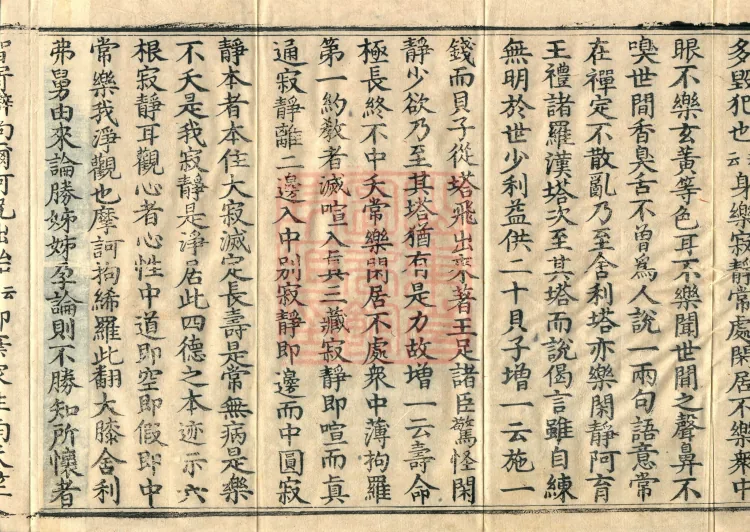 多毀犯也云身樂寂靜常處閑居不樂衆中
眼不樂玄黃等色耳不樂聞世間之聲鼻不
嗅世間香臭舌不曾爲人說一兩句語意常
在禪定不散亂乃至舍利塔亦樂閑靜阿育
王禮諸羅漢塔次至其塔而說偈言雖自練
無明於世少利益供二十貝子增一云施一
錢而貝子從塔飛出來著王足諸臣驚怪閑
靜少欲乃至其塔猶有是力故增一云壽命
極長終不中夭常樂閑居不處衆中薄拘羅
第一約敎者滅喧入眞三藏寂靜即喧而眞
通寂靜離二邊入中別寂靜即邊而中圓寂
靜本者本住大寂滅定長壽是常無病是樂
不夭是我寂靜是淨居此四德之本迹示六
根寂靜耳觀心者心性中道即空即假即中
常樂我淨觀也摩訶拘絺羅此翻大膝舍利
弗舅由來論勝姊姊孕論則不勝知所懷者